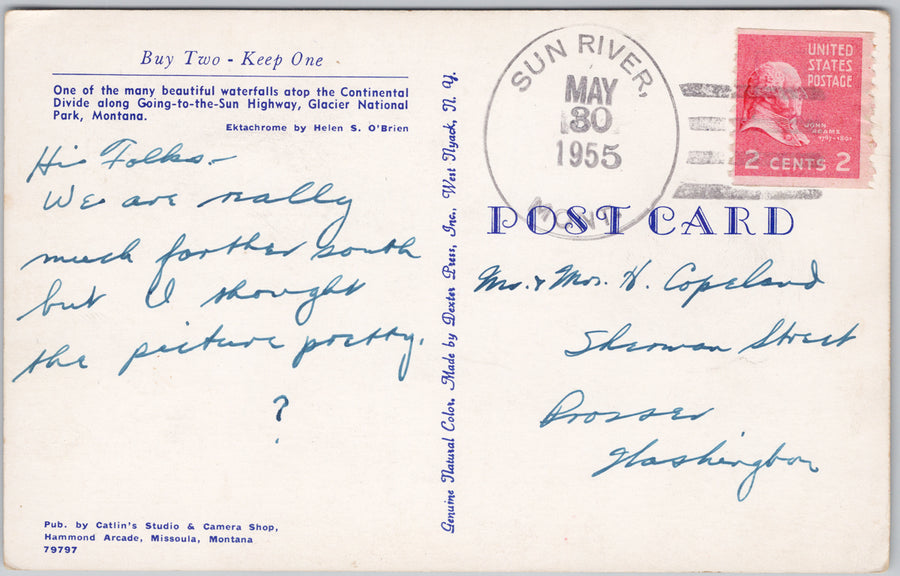 Buy Two - Keep One
One of the many beautiful waterfalls atop the Continental
Divide along Going-to-the-Sun Highway, Glacier National
Park, Montana.
Ektachrome by Helen S. O'Brien
Hi Folks -
We are really
much farther south
but I thought
the picture pretty.
?
Pub. by Catlin's Studio & Camera Shop,
Hammond Arcade, Missoula, Montana
79797
Genuine Natural Color. Made by Dexter Press, Inc., West Nyack, N. Y.
SUN RIVER,
MAY
30
1955
MONT
UNITED
STATES
POSTAGE
JOHN
ADAMS
1797-1801
2 CENTS 2
POST CARD
Mr. & Mrs. H. Copeland
Sherman Street
Prosser
Washington